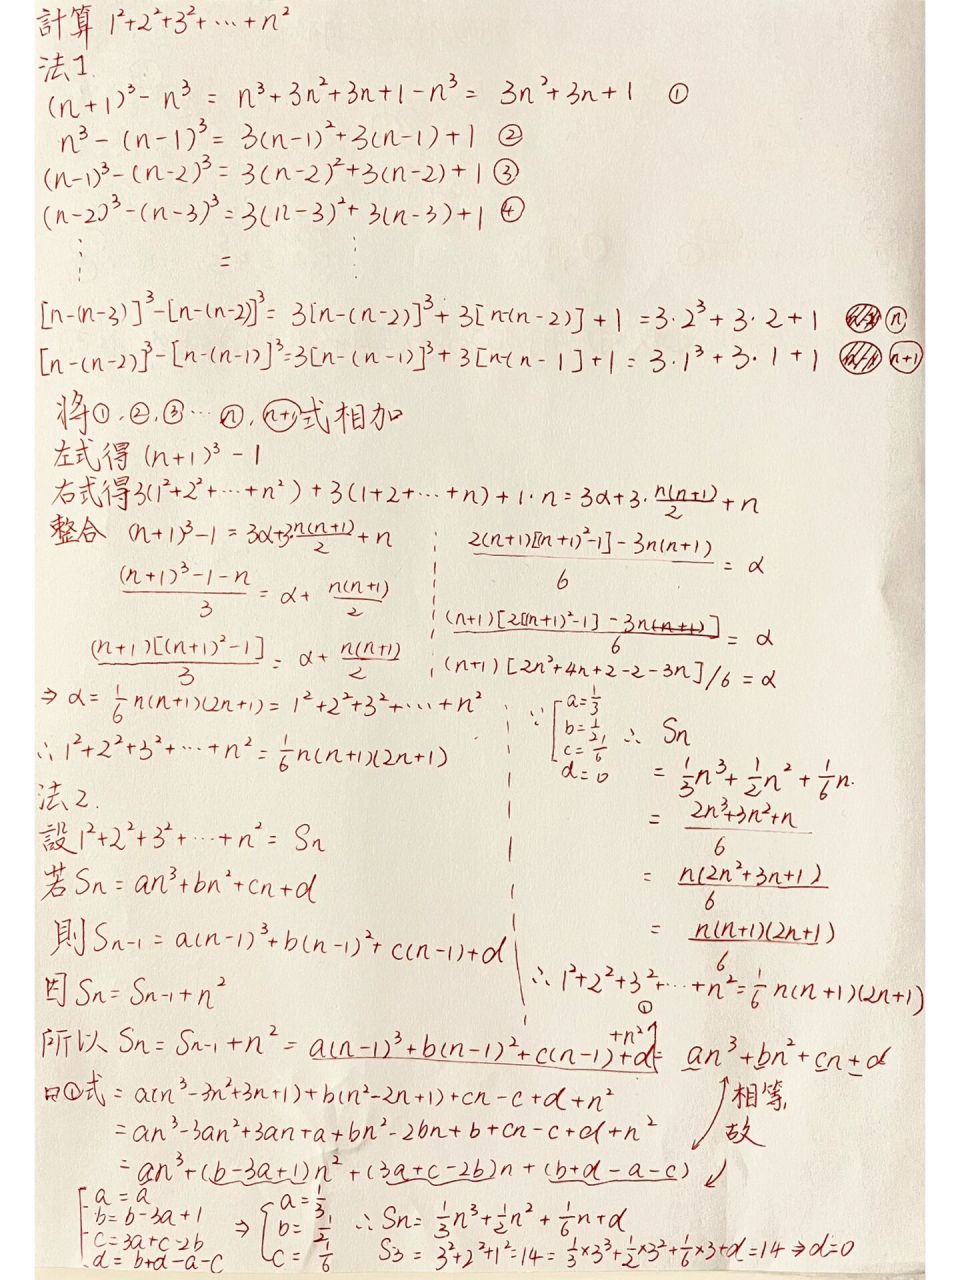 計算 1²+2²+3²+⋯+n²
法1.
(n+1)³-n³ = n³+3n²+3n+1-n³ = 3n²+3n+1 ①
n³-(n-1)³ = 3(n-1)²+3(n-1)+1 ②
(n-1)³-(n-2)³ = 3(n-2)²+3(n-2)+1 ③
(n-2)³-(n-3)³ = 3(n-3)²+3(n-3)+1 ④
⋮ = ⋮
[n-(n-3)]³-[n-(n-2)]³ = 3[n-(n-2)]³+3[n-(n-2)]+1 = 3·2³+3·2+1 ⓝ
[n-(n-2)]³-[n-(n-1)]³ = 3[n-(n-1)]³+3[n-(n-1]+1 = 3·1³+3·1+1 (n+1)
將①,②,③⋯ⓝ,(n+1)式相加
左式得 (n+1)³-1
右式得3(1²+2²+⋯+n²)+3(1+2+⋯+n)+1·n = 3α+3·n(n+1)/2+n
整合 (n+1)³-1 = 3α+3·n(n+1)/2+n
((n+1)³-1-n)/3 = α+n(n+1)/2
(n+1)[(n+1)²-1]/3 = α+n(n+1)/2
(2(n+1)[(n+1)²-1]-3n(n+1))/6 = α
(n+1)[2[(n+1)²-1]-3n]/6 = α
(n+1)[2n²+4n+2-2-3n]/6 = α
⇒ α = 1/6 n(n+1)(2n+1) = 1²+2²+3²+⋯+n²
∴ 1²+2²+3²+⋯+n² = 1/6 n(n+1)(2n+1)
法2.
設1²+2²+3²+⋯+n² = Sn
若Sn = an³+bn²+cn+d
則Sn-1 = a(n-1)³+b(n-1)²+c(n-1)+d
因Sn = Sn-1+n²
所以 Sn = Sn-1+n² = a(n-1)³+b(n-1)²+c(n-1)+d +n² ① = an³+bn²+cn+d
①式 = a(n³-3n²+3n+1)+b(n²-2n+1)+cn-c+d+n²
= an³-3an²+3an+a+bn²-2bn+b+cn-c+d+n²
= an³+(b-3a+1)n²+(3a+c-2b)n+(b+d-a-c)
相等,
故
a = a
b = b-3a+1
c = 3a+c-2b
d = b+d-a-c
⇒
a = 1/3
b = 1/2
c = 1/6
∴ Sn = 1/3n³+1/2n²+1/6n+d
S3 = 3²+2²+1² = 14 = 1/3×3³+1/2×3²+1/6×3+d = 14 ⇒ d=0
∵
a = 1/3
b = 1/2
c = 1/6
d = 0
∴ Sn
= 1/3n³+1/2n²+1/6n.
= (2n³+3n²+n)/6
= n(2n²+3n+1)/6
= n(n+1)(2n+1)/6
∴ 1²+2²+3²+⋯+n² = 1/6 n(n+1)(2n+1)